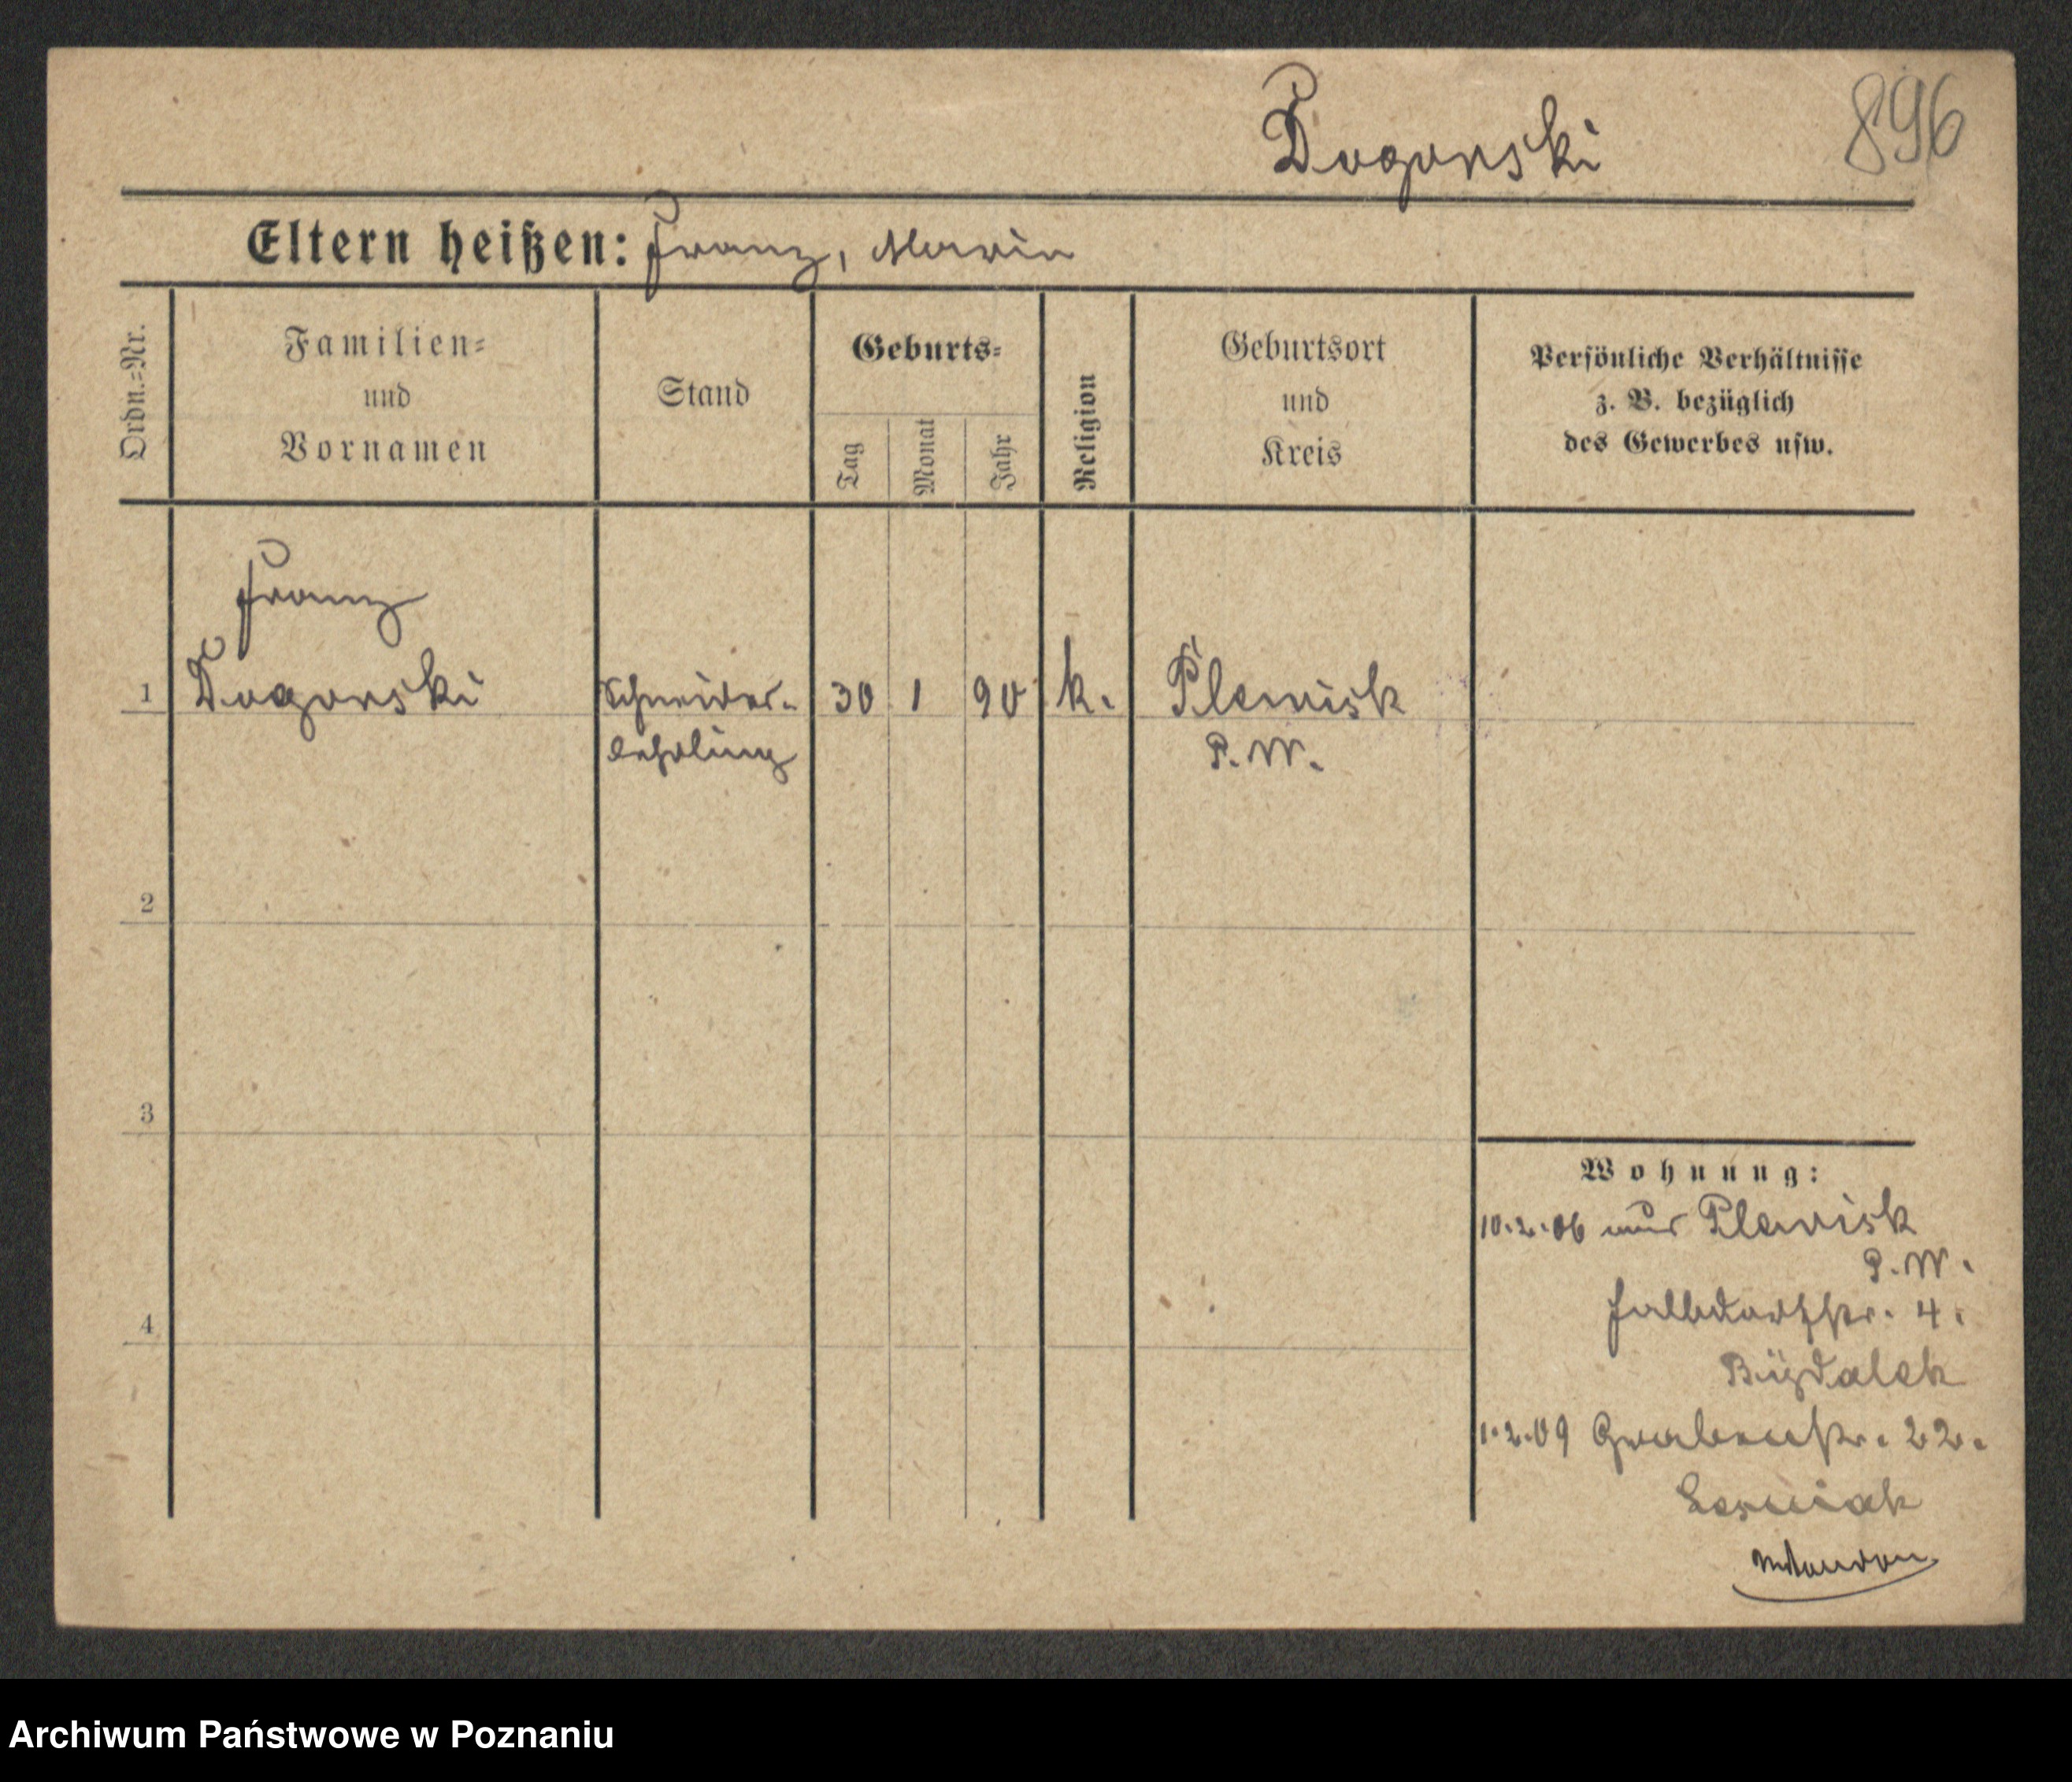 Dogonski
896
Eltern heißen: Franz, Maria
Ordn.=Nr.
Familien=
und
Vornamen
Stand
Geburts=
Tag
Monat
Jahr
Religion
Geburtsort
und
Kreis
Persönliche Verhältnisse
z. B. bezüglich
des Gewerbes usw.
Franz
1 Dogonski Schneider- 30 1 90 k. Plewisk
lehrling P. W.
2
3
4
Wohnung:
10.2.06 aus Plewisk
P. W.
Halbdorfstr. 4.
1.2.09 Grabenstr. 22.
Lesniak
Archiwum Państwowe w Poznaniu